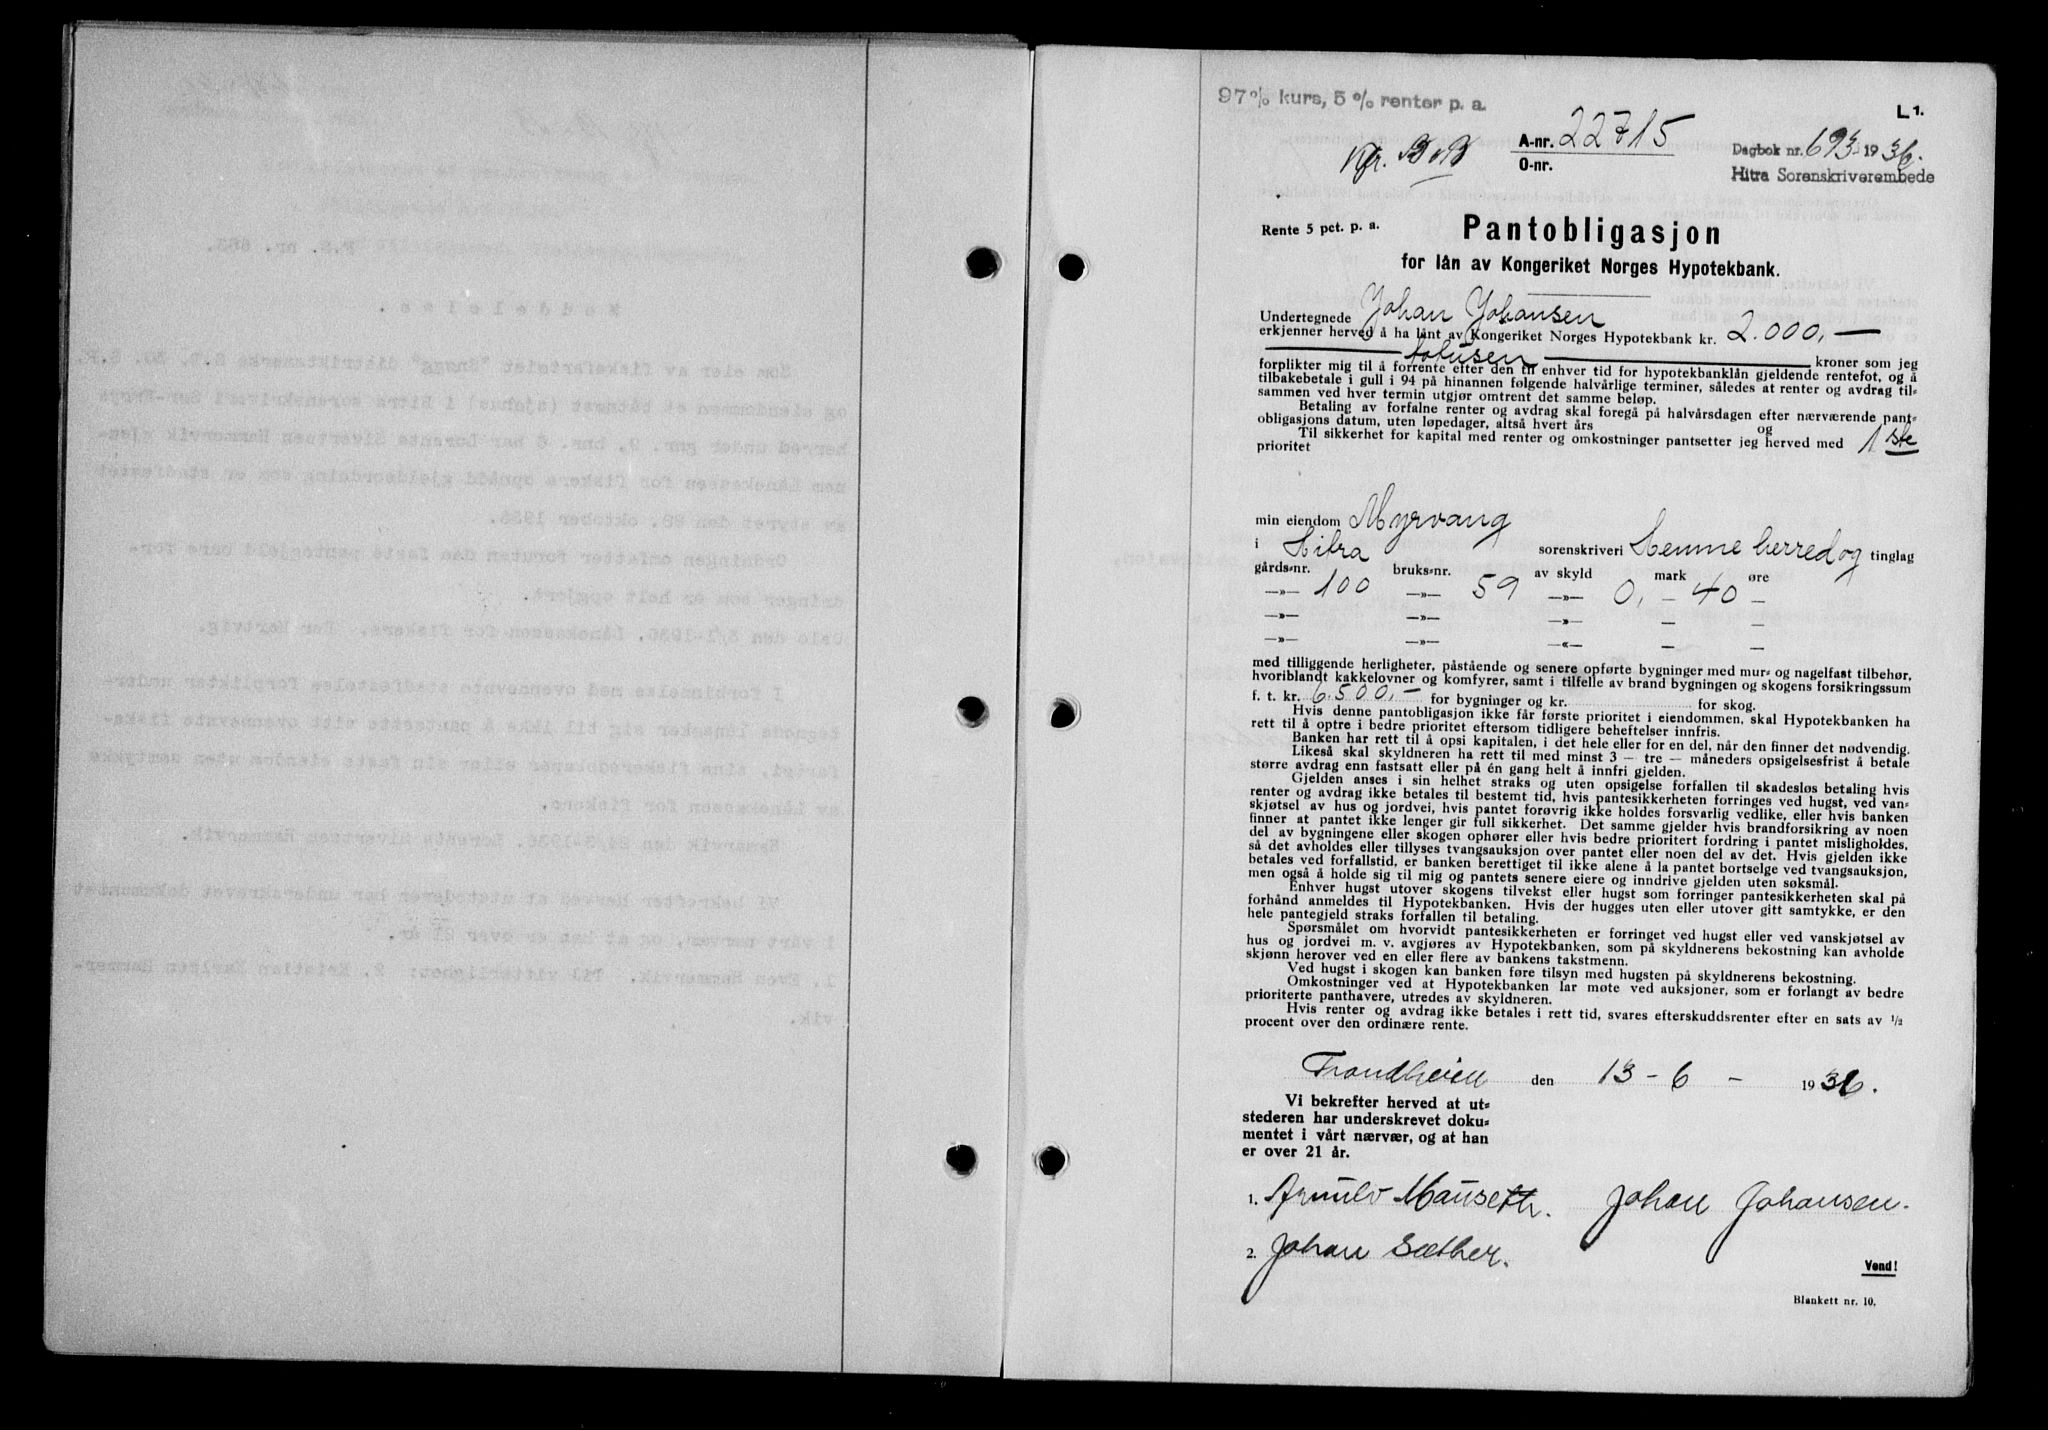 97 % kurs, 5 % renter p. a.
L 1.
A-nr. 22715
O-nr.
Dagbok nr. 693 1936.
Hitra Sorenskriverembede
Rente 5 pct. p. a.
Pantobligasjon
for lån av Kongeriket Norges Hypotekbank.
Undertegnede Johan Johansen
erkjenner herved å ha lånt av Kongeriket Norges Hypotekbank kr. 2.000,—
— totusen — kroner som jeg
forplikter mig til å forrente efter den til enhver tid for hypotekbanklån gjeldende rentefot, og å
tilbakebetale i gull i 94 på hinannen følgende halvårlige terminer, således at renter og avdrag til-
sammen ved hver termin utgjør omtrent det samme beløp.
Betaling av forfalne renter og avdrag skal foregå på halvårsdagen efter nærværende pant-
obligasjons datum, uten løpedager, altså hvert års og
Til sikkerhet for kapital med renter og omkostninger pantsetter jeg herved med 1ste
prioritet
min eiendom Myrvang
i Hitra sorenskriveri Hemne herred og tinglag
gårds-nr. bruks-nr. av skyld mark øre
—»— 100 —»— 59 —»— 0, — 40 —
—»— —»— —»— — —
—»— —»— —«— — —
med tilliggende herligheter, påstående og senere opførte bygninger med mur- og nagelfast tilbehør,
hvoriblandt kakkelovner og komfyrer, samt i tilfelle av brand bygningen og skogens forsikringssum
f. t. kr. 6.500,— for bygninger og kr. for skog.
Hvis denne pantobligasjon ikke får første prioritet i eiendommen, skal Hypotekbanken ha
rett til å optre i bedre prioritet eftersom tidligere beheftelser innfris.
Banken har rett til å opsi kapitalen, i det hele eller for en del, når den finner det nødvendig.
Likeså skal skyldneren ha rett til med minst 3 — tre — måneders opsigelsesfrist å betale
større avdrag enn fastsatt eller på én gang helt å innfri gjelden.
Gjelden anses i sin helhet straks og uten opsigelse forfallen til skadesløs betaling hvis
renter og avdrag ikke betales til bestemt tid, hvis pantesikkerheten forringes ved hugst, ved van-
skjøtsel av hus og jordvei, hvis pantet forøvrig ikke holdes forsvarlig vedlike, eller hvis banken
finner at pantet ikke lenger gir full sikkerhet. Det samme gjelder hvis brandforsikring av noen
del av bygningene eller skogen ophører eller hvis bedre prioritert fordring i pantet misligholdes,
så det avholdes eller tillyses tvangsauksjon over pantet eller noen del av det. Hvis gjelden ikke
betales ved forfallstid, er banken berettiget til ikke alene å la pantet bortselge ved tvangsauksjon,
men også å holde sig til mig og pantets senere eiere og inndrive gjelden uten søksmål.
Enhver hugst utover skogens tilvekst eller hugst som forringer pantesikkerheten skal på
forhånd anmeldes til Hypotekbanken. Hvis der hugges uten eller utover gitt samtykke, er den
hele pantegjeld straks forfallen til betaling.
Spørsmålet om hvorvidt pantesikkerheten er forringet ved hugst eller ved vanskjøtsel av
hus og jordvei m. v. avgjøres av Hypotekbanken, som på skyldnerens bekostning kan avholde
skjønn herover ved en eller flere av bankens takstmenn.
Ved hugst i skogen kan banken føre tilsyn med hugsten på skyldnerens bekostning.
Omkostninger ved at Hypotekbanken lar møte ved auksjoner, som er forlangt av bedre
prioriterte panthavere, utredes av skyldneren.
Hvis renter og avdrag ikke betales i rett tid, svares efterskuddsrenter efter en sats av 1/2
procent over den ordinære rente.
Trondheim den 13 - 6 - 1936.
Vi bekrefter herved at ut-
stederen har underskrevet doku-
mentet i vårt nærvær, og at han
er over 21 år.
1. Arnulv Mausethr. Johan Johansen.
2. Johan Sæther.
Vend!
Blankett nr. 10.